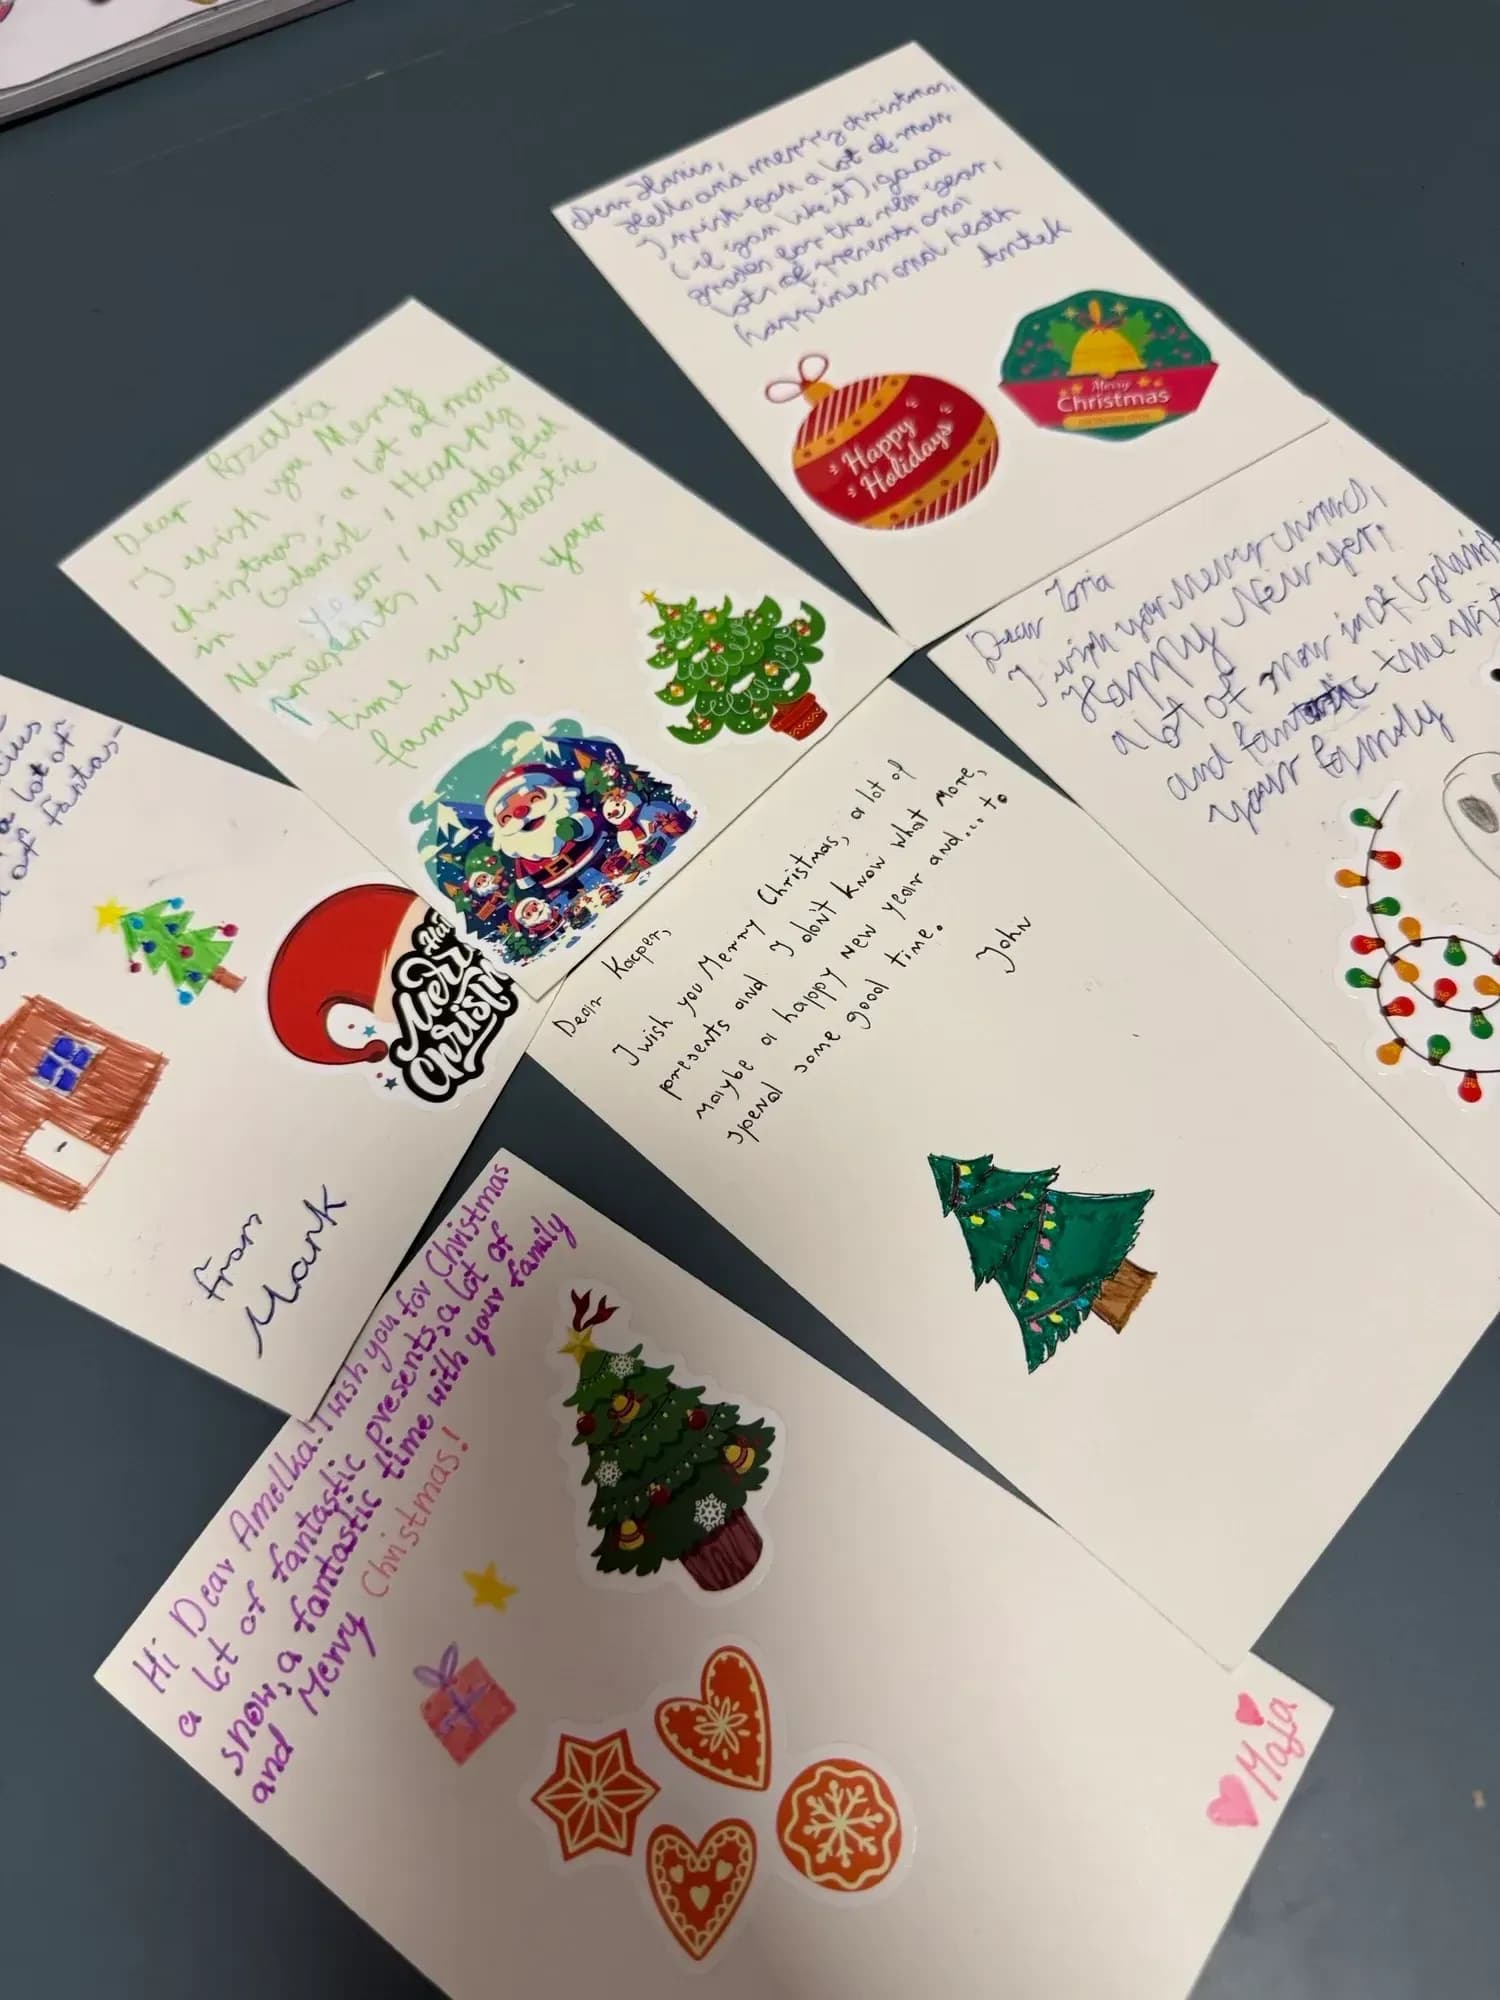 Dear Hania,
Hello and merry christmas.
I wish you a lot of snow
(if you like it), good
grades for the new year,
lots of presents and
happiness and
Antek
Happy
Holidays
Merry
Christmas
Dear Rozalia
I wish you Merry
christmas, a lot of snow
in Gdańsk, Happy
New Year, wonderful
presents, fantastic
time with your
family.
Dear Zoria
I wish your Merry
Happy New Yer,
a lot of snow in
and fantastic time wit
your family
a lot of
of fantas-
Merry
From
Mark
Dear Kacper,
I wish you Merry Christmas, a lot of
presents and I don't know what more,
maybe a happy new year and... to
spend some good time.
John
Hi Dear Amelka! I wish you for Christmas
a lot of fantastic presents, a lot of
snow, a fantastic time with your family
and Merry Christmas!
Maja